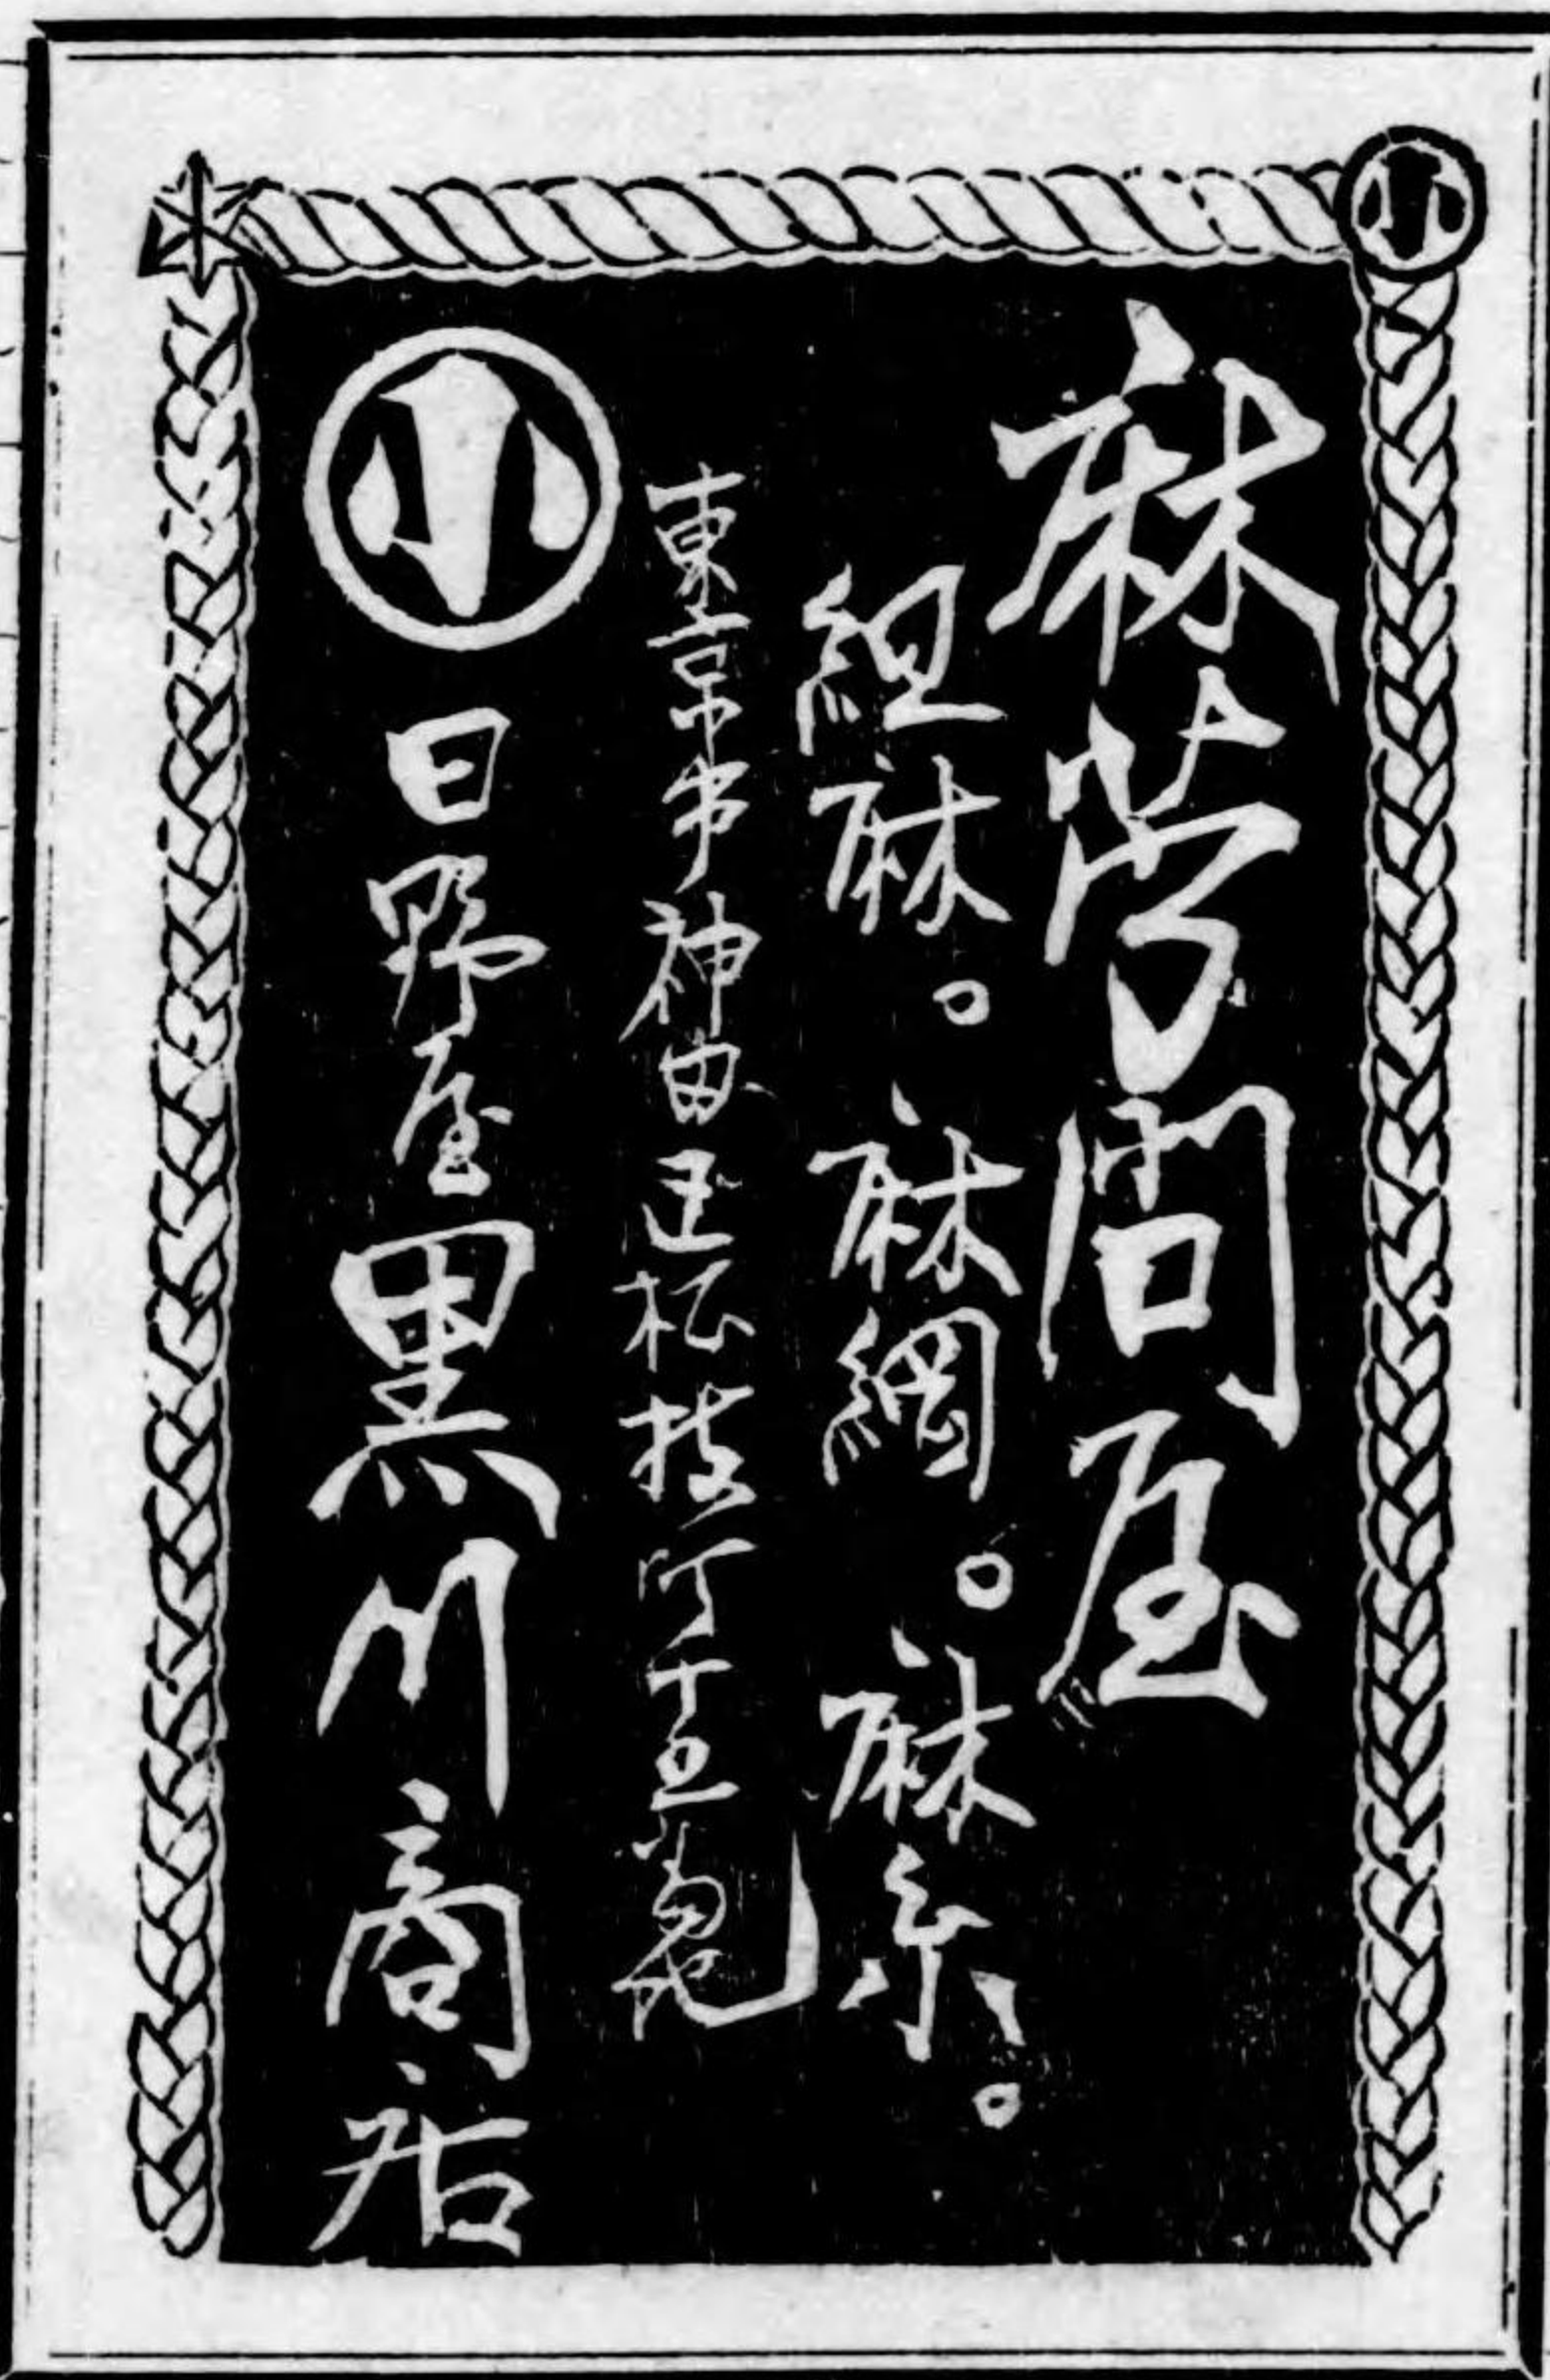 小
麻苧問屋
組麻。麻綱。麻糸。
東京市神田区松枝町十五番地
小 日野屋黒川商店